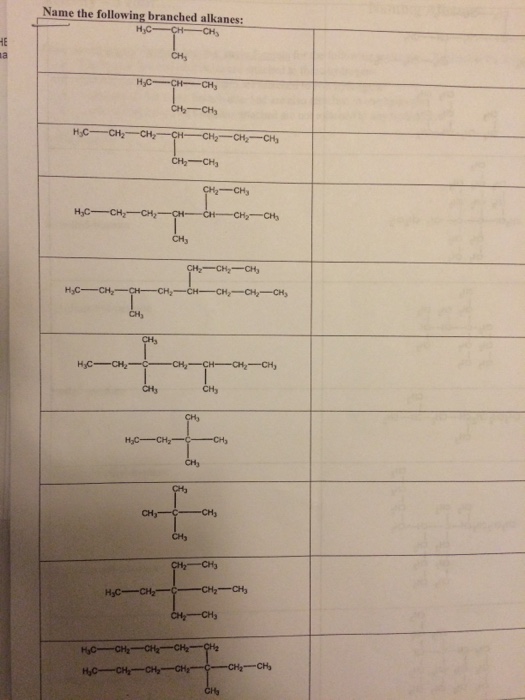 Name the following branched alkanes:
H₃C—CH—CH₃
CH₃
H₃C—CH—CH₃
CH₂—CH₃
H₃C—CH₂—CH₂—CH—CH₂—CH₂—CH₃
CH₂—CH₃
CH₂—CH₃
H₃C—CH₂—CH₂—CH—CH—CH₂—CH₃
CH₃
CH₂—CH₂—CH₃
H₃C—CH₂—CH—CH₂—CH—CH₂—CH₂—CH₃
CH₃
CH₃
H₃C—CH₂—C—CH₂—CH—CH₂—CH₃
CH₃ CH₃
CH₃
H₃C—CH₂—C—CH₃
CH₃
CH₃
CH₃—C—CH₃
CH₃
CH₂—CH₃
H₃C—CH₂—C—CH₂—CH₃
CH₂—CH₃
H₃C—CH₂—CH₂—CH₂—CH₂
H₃C—CH₂—CH₂—CH₂—C—CH₂—CH₃
CH₃